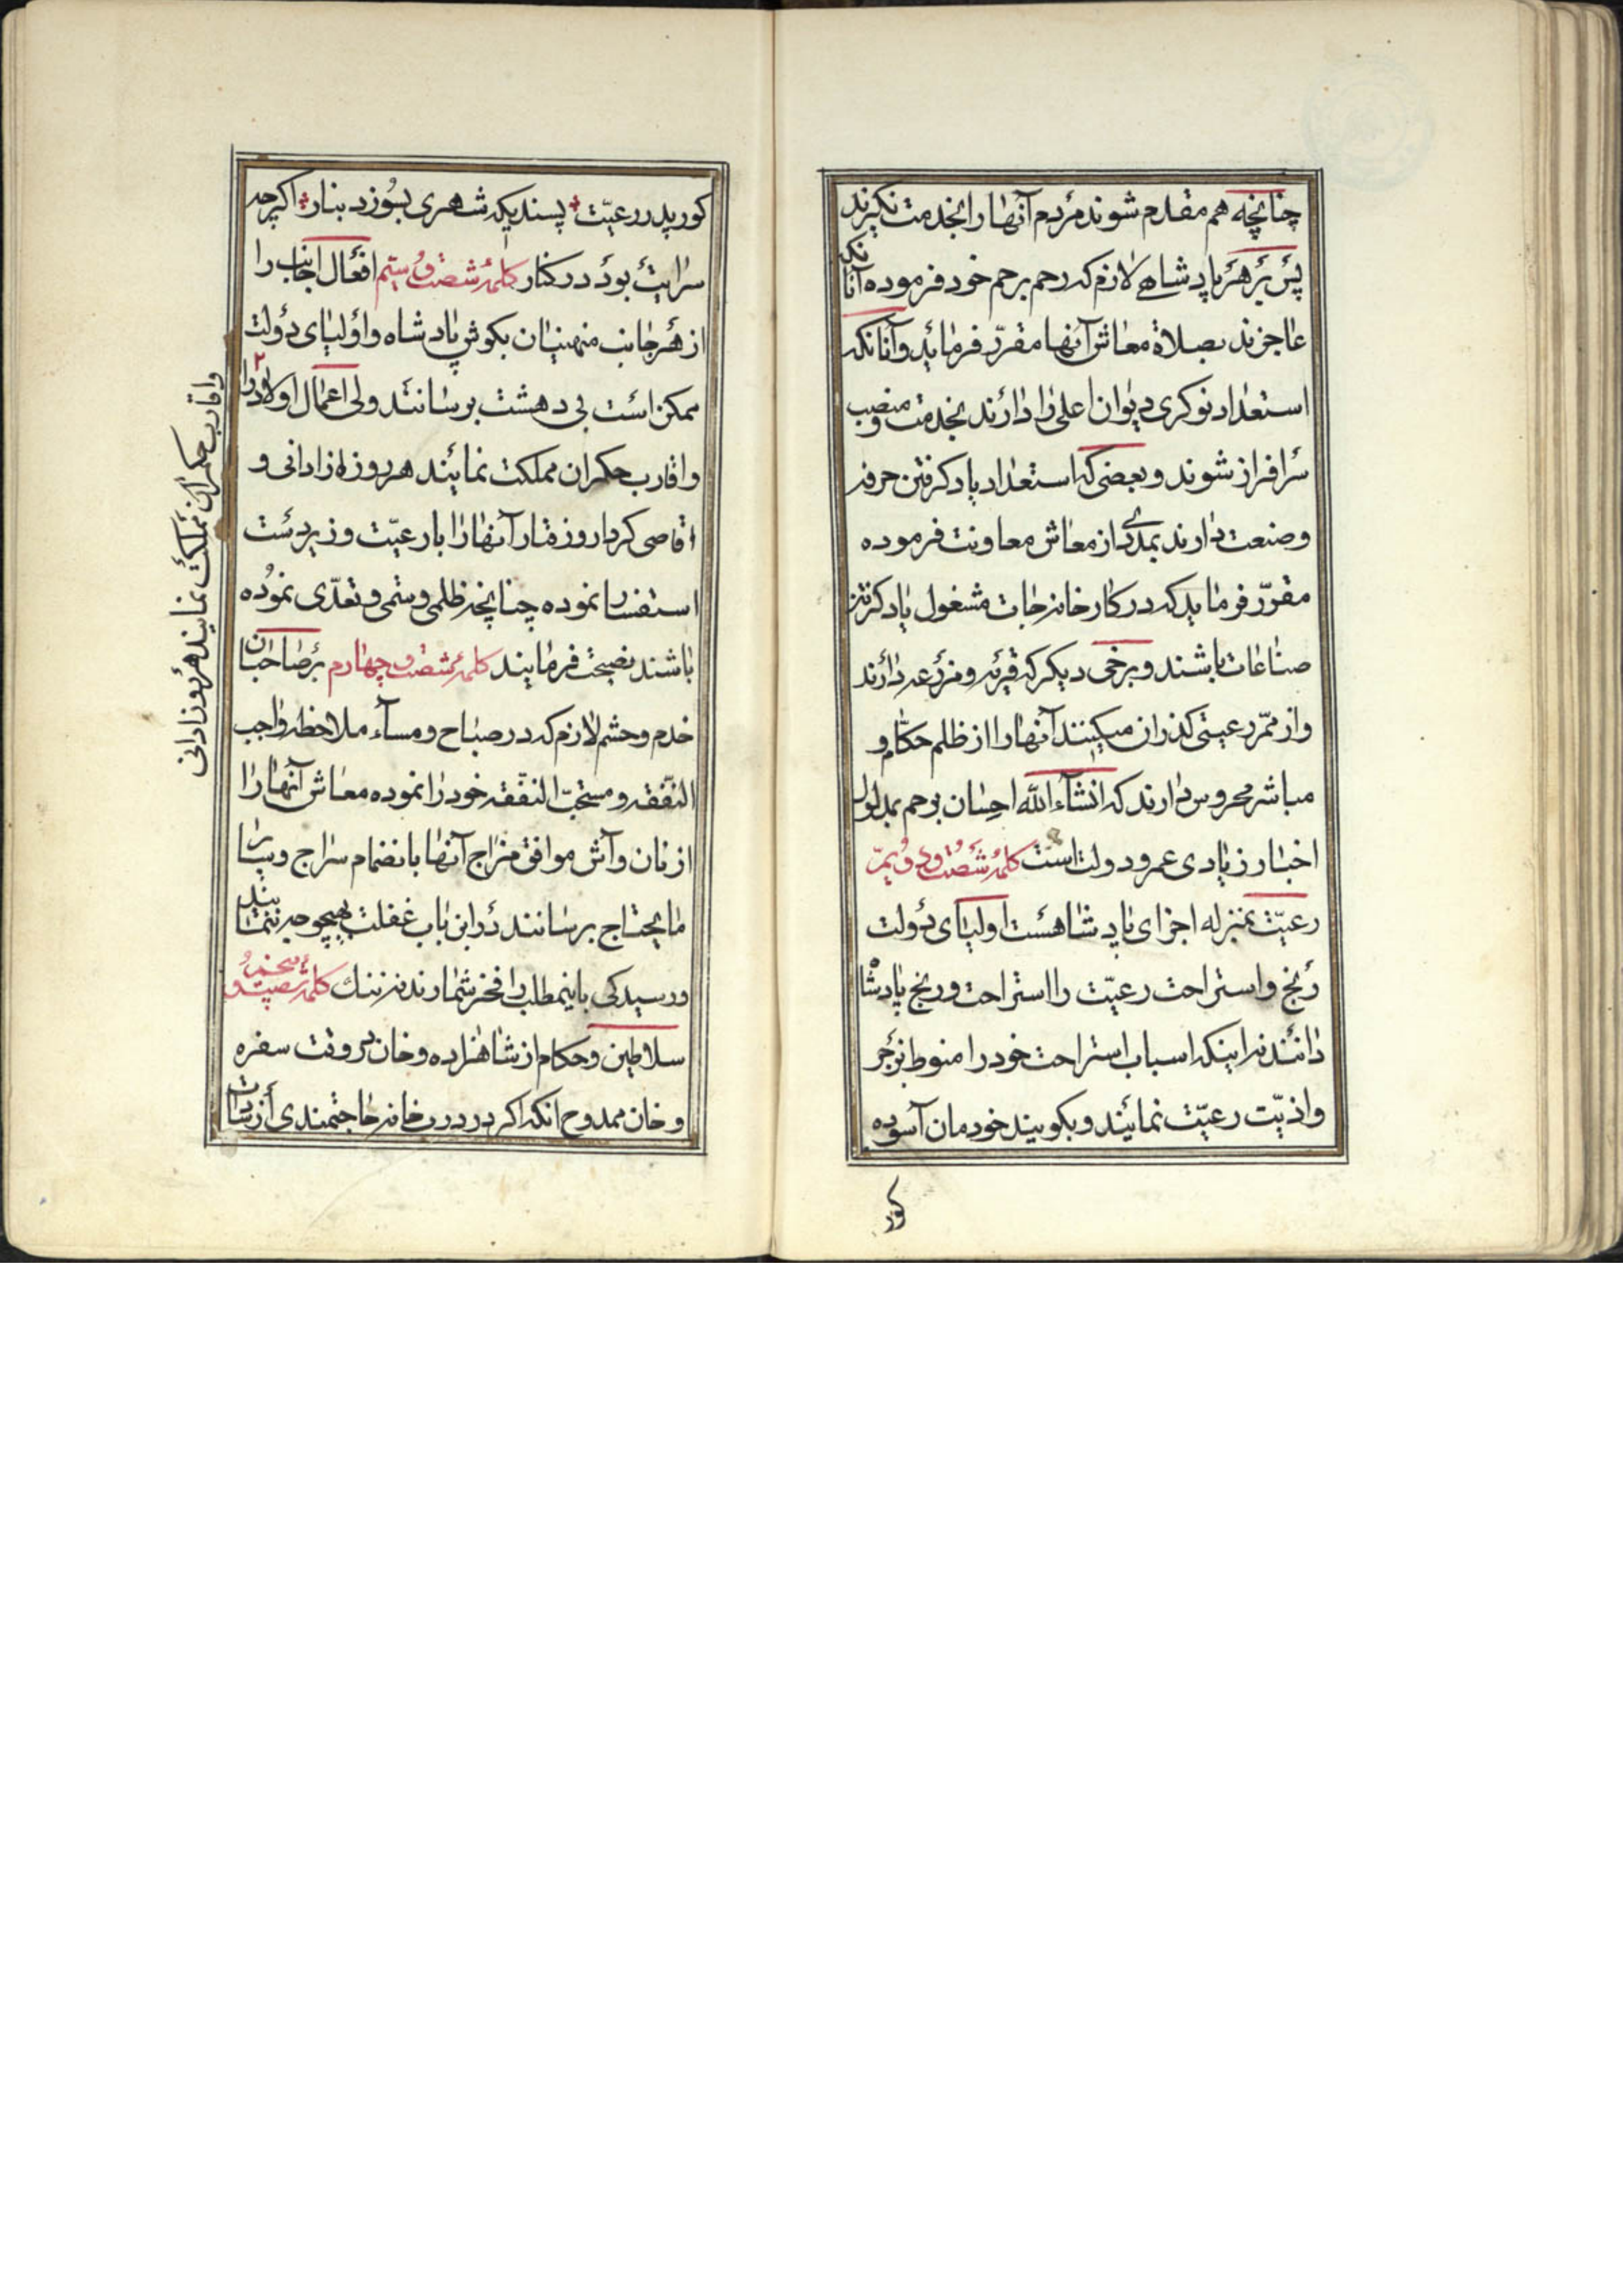 چنانچه هم مقدم شوند مردم آنها را بخدمت نگیرند
پس بر هر پادشاهی لازم که رحم برحم خود فرموده آنانکه
عاجزند بصلاة معاش آنها مقرّر فرماید و آنانکه
استعداد نوکری دیوان اعلی را دارند بخدمت و منصب
سرافراز شوند و بعضی که استعداد یاد کرفتن حرفه
و صنعت دارند بمددی از معاش معاونت فرموده
مقرّر فرماید که در کارخانه جات مشغول یاد کرفتن
صناعات باشند و برخی دیکر که قریه و مزرعه دارند
و از ممّر رعیتی کذران میکنند آنها را از ظلم حکام و
مباشر محروس دارند که انشاء الله احسان برحم بمدلول
اخبار زیادی عمر و دولت است کلمهٔ شصت و دویّم
رعیّت بمنزله اجزای پادشاهست اولیای دولت
رنج و استراحت رعیّت را استراحت و رنج پادشاه
دانند نه اینکه اسباب استراحت خود را منوط بزجر
و اذیّت رعیّت نمایند و بکویند خودمان آسوده
کور
کور پدر رعیّت پسندیکه شهری بسوزد بنار اکرچه
سرایت بود در کنار کلمهٔ شصت و سیّم افعال اجانب را
از هر جانب منهیان بکوش پادشاه و اولیای دولت
ممکن است بی دهشت برسانند ولی اعمال اولاد را
و اقارب حکمران مملکت نمایند هر روزه از ادانی و
اقاصی کردار و رفتار آنها را با رعیّت و زیردست
استفسار نموده چنانچه ظلمی و ستمی و تعدّی نموده
باشند نصیحت فرمایند کلمهٔ شصت و چهارم بر صاحبان
خدم و حشم لازم که در صباح و مسآء ملاحظه واجب
النّفقه و مستحبّ النفقه خود را نموده معاش آنها را
از نان و آش موافق مزاج آنها بانضمام سراج و سایر
مایحتاج برسانند در این باب غفلت بهیچوجه ننمایند
و رسیدکی باینمطلب را فخر شمارند نه ننک کلمهٔ شصت و پنجم
سلاطین و حکام از شاهزاده و خان بر وقت سفره
و خان ممدوح انکه اکر در درب خانه حاجتمندی از سادات
و اقارب حکمران مملکت نمایند هر روز از ادانی